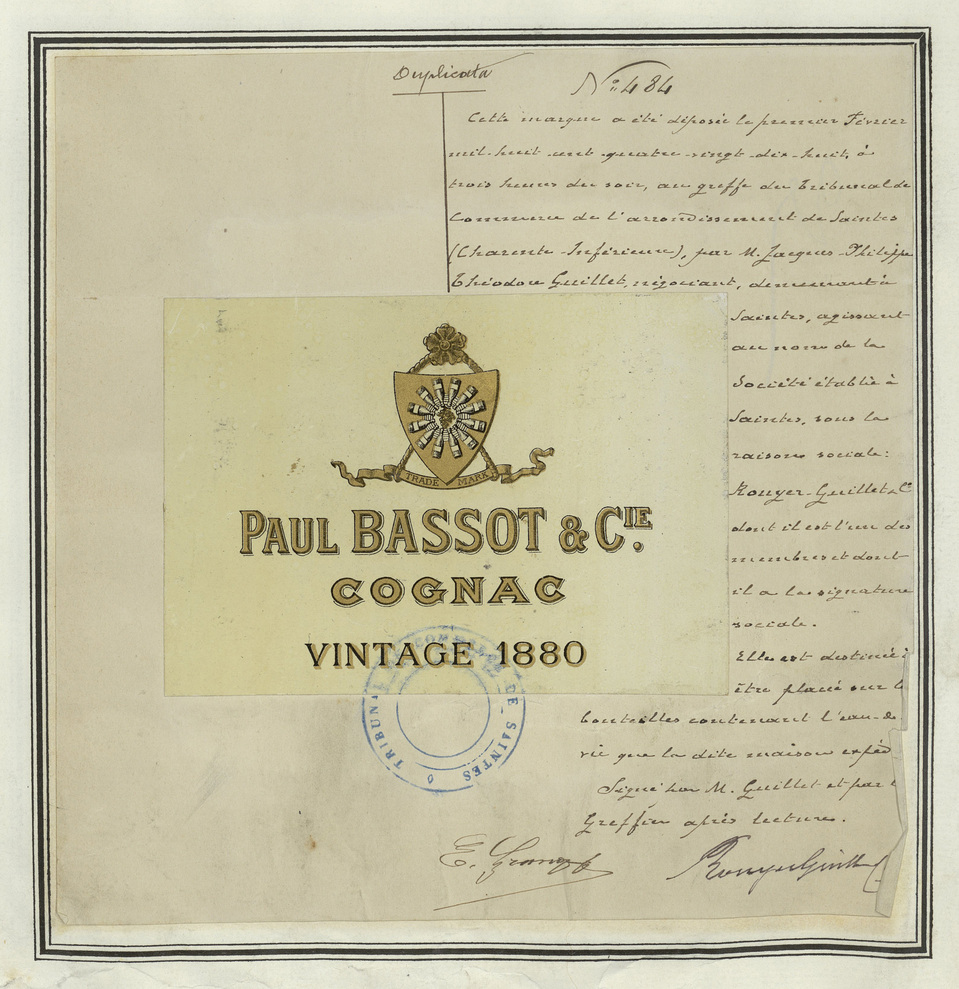 Duplicata
N° 484
Cette marque a été déposée le premier Février
mil-huit cent quatre-vingt-dix-huit, à
trois heures du soir, au greffe du Tribunal de
Commerce de l'arrondissement de Saintes
(Charente-Inférieure), par M. Jacques-Philippe
Théodore Guillet, négociant, demeurant à
Saintes, agissant
au nom de la
Société établie à
Saintes, sous la
raison sociale:
Rouyer-Guillet & Cie
dont il est l'un des
membres et dont
il a la signature
sociale.
Elle est destinée à
être placée sur l
bouteilles contenant l'eau-de
vie que la dite maison expéd
Signé par M. Guillet et par l
Greffier après lecture.
TRADE MARK
PAUL BASSOT & CIE.
COGNAC
VINTAGE 1880
TRIBUNAL DE COMMERCE DE SAINTES
Rouyer Guillet